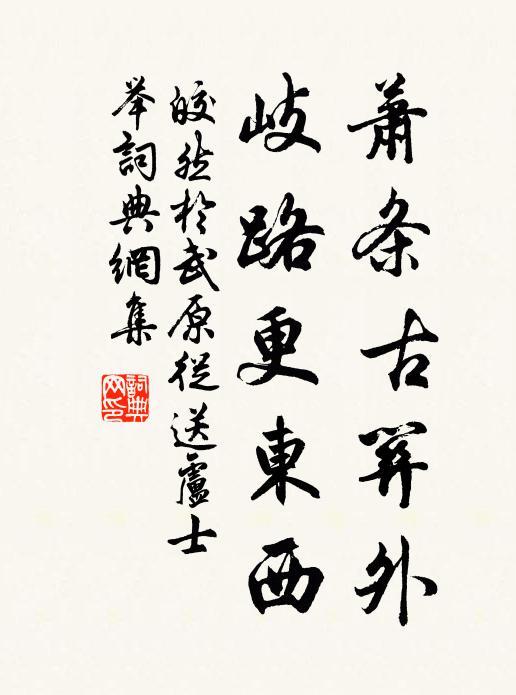 蕭条古關外
岐路更東西
皎然於武原從送盧士
举詞典網集
詞典
网印